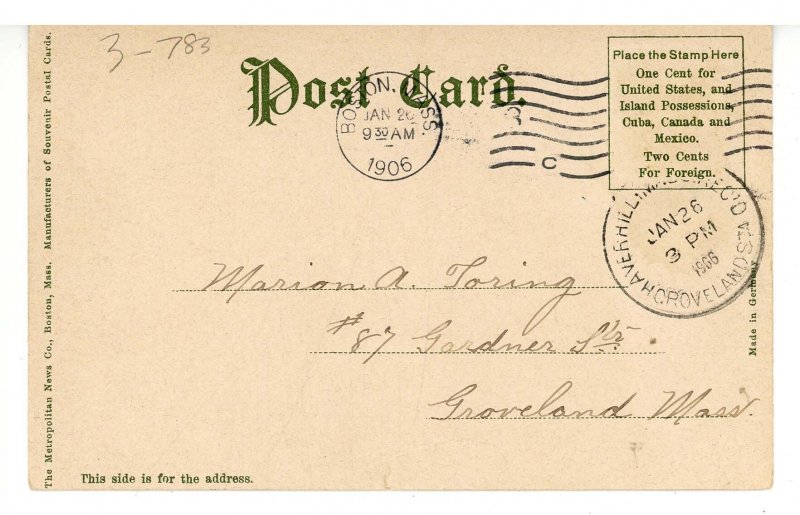 3-783
Post Card.
Place the Stamp Here
One Cent for
United States, and
Island Possessions,
Cuba, Canada and
Mexico.
Two Cents
For Foreign.
BOSTON, MASS.
JAN 26
9 30 AM
1906
C
HAVERHILL, MASS. REC'D
JAN 26
3 PM
1906
GROVELAND STA
Marion A. Loring
#87 Gardner Str.
Groveland Mass.
This side is for the address.
The Metropolitan News Co., Boston, Mass. Manufacturers of Souvenir Postal Cards.
Made in Germany